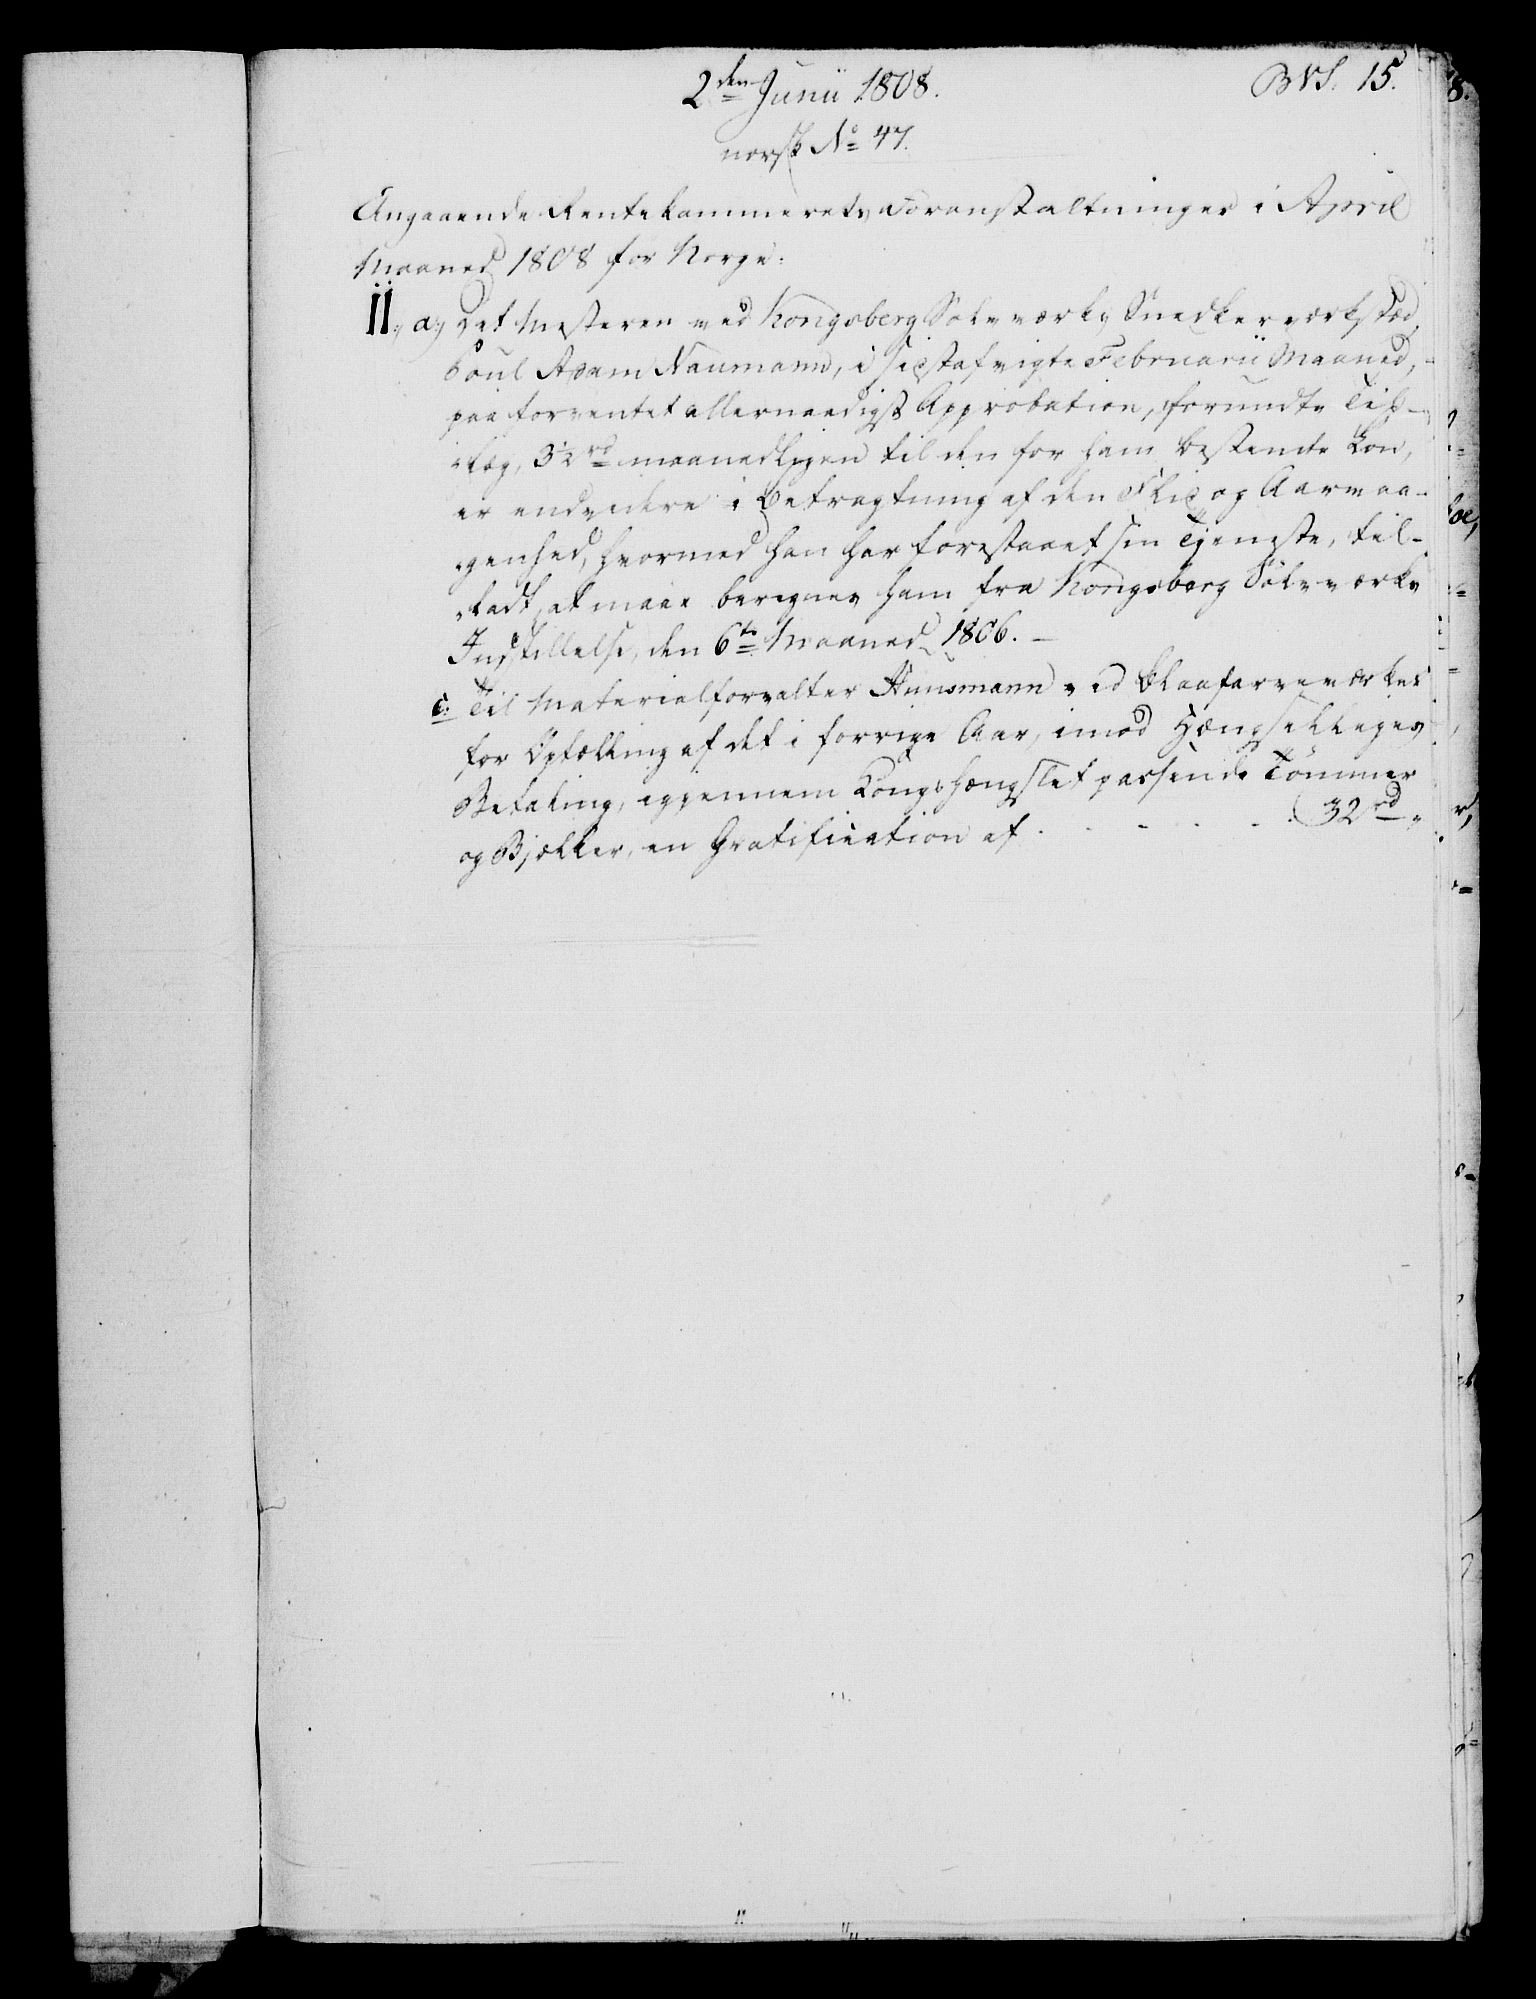 2den Junii 1808.
BVS. 15.
norsk No 47.
Angaaende Rentekammerets Foranstaltninger i April
Maaned 1808 for Norge:
II, a, Det Mesteren ved Kongsberg Sølvværks Snedkerværksted,
Poul Adam Naumann, i sidstafvigte Februarii Maaned,
paa forventet allernaadigst Approbation, forundte Til-
læg, 3½ rd maanedligen til den for ham bestemte Løn,
er endvidere i Betragtning af den Fliid og Aarvaa-
genhed, hvormed han har forestaaet sin Tjeneste, til-
ladt, at maae beregnes ham fra Kongsberg Sølvværks
Indstillelse, den 6te Maaned 1806.
c. Til Materialforvalter Huusmann ved Blaafarveværket
for Optælling af det i forrige Aar, imod
Betaling, igjennem passerende Tømmer
og Bjælker, en Gratification af . . . . . . 32 rd